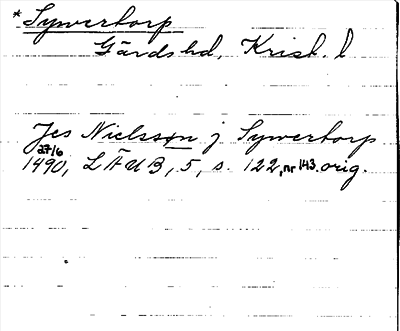 *Sywertorp
Gärds hd, Krist. l
Jes Nielsson j Sywertorp
27/6
1490, LÄUB, 5, s. 122, nr 143. orig.